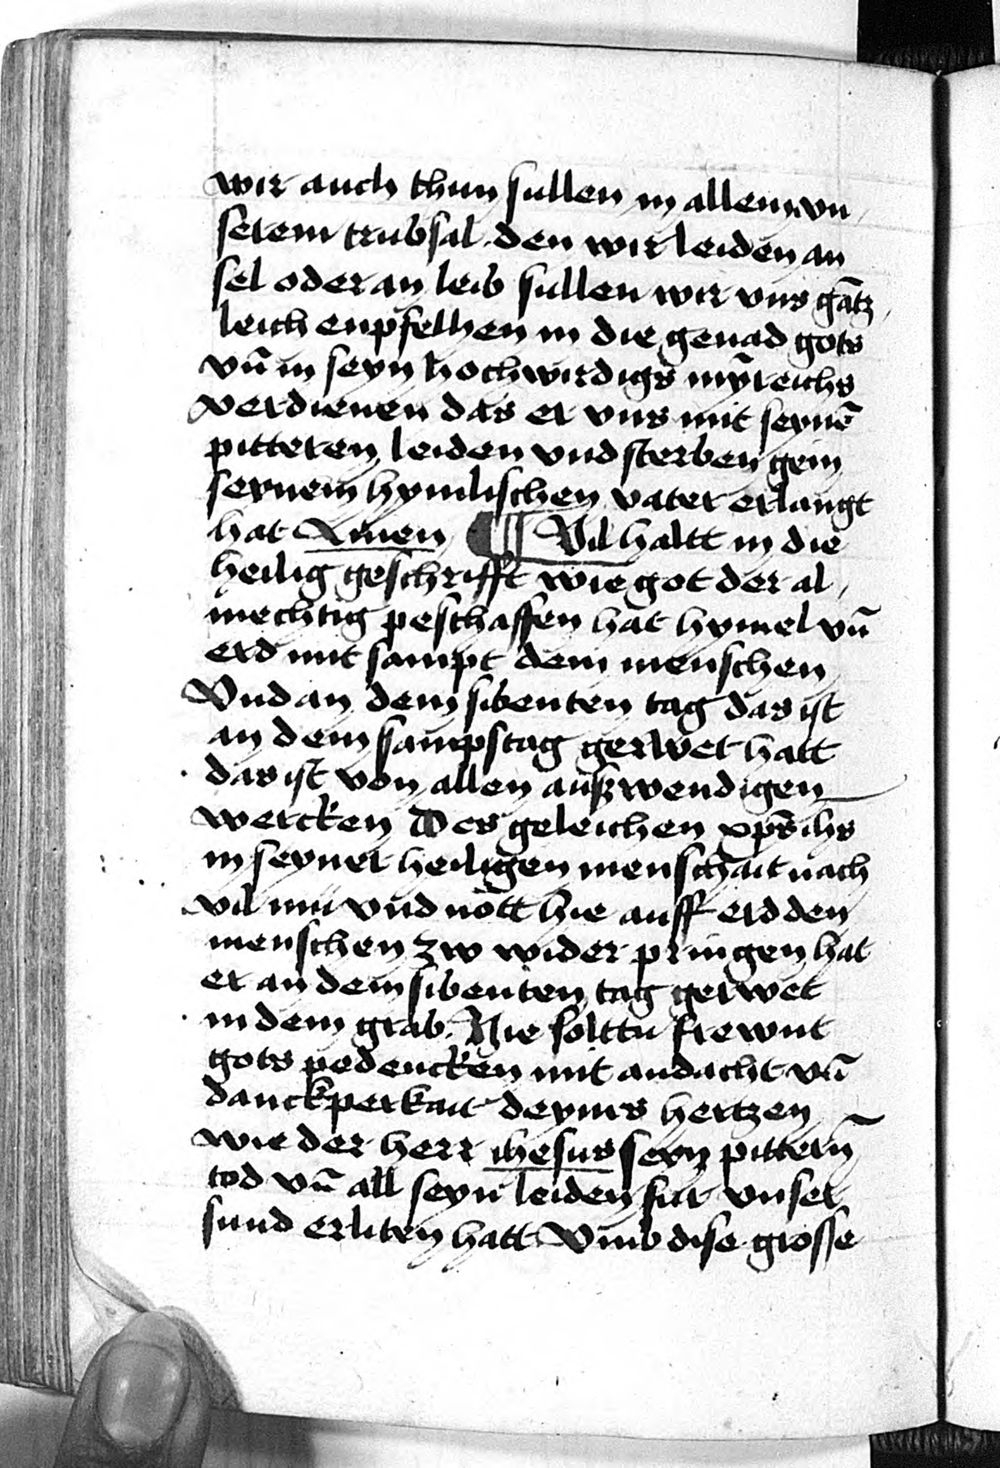 wir auch thun sullen in allem vn
serem trubsal den wir leiden an
sel oder an leib sullen wir vns gātz
leich enpfelhen in die genad gots
vn̄ in seyn hochwirdigs
verdienen das er vns mit seynē
pitteren leiden vnd sterben gein
seynem hymlischen vater erlangt
hat Amen ¶ Vil haltt in die
heilig geschrifft wie got der al
mechtig peschaffen hat hymel vn̄
erd mit sampt dem menschen
Vnd an dem sibenten tag das ist
an dem sampstag gerwet hatt
das ist von allen außwendigen
wercken Des geleichen xp̄s ihs
in seyner heiligen menschait nach
vil mu vnd nott hie auff erd den
menschen zw wider pringen hat
er an dem sibenten tag gerwet
in dem grab. Hie solttu frewnt
gots pedencken mit andacht vn̄
danckperkait deynes hertzen
wie der herr ihesus seyn pittern̄
tod vn̄ all seyn leiden fur vnser
sund erliten hatt Vmb dise grosse